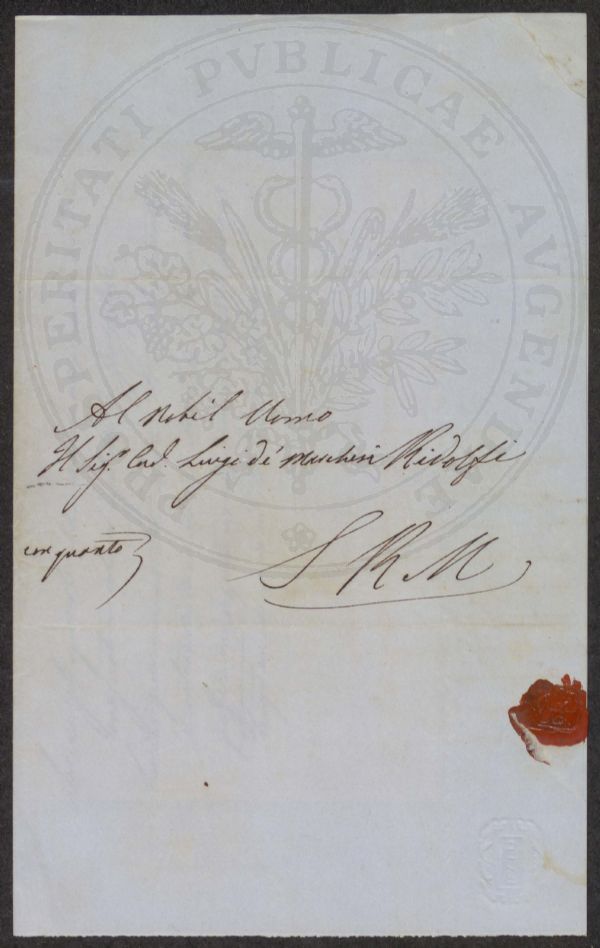 PROSPERITATI PVBLICAE AVGENDAE
Al Nobil Uomo
Il Sig. Cav. Luigi de' Marchesi Ridolfi
con quanto
S R M